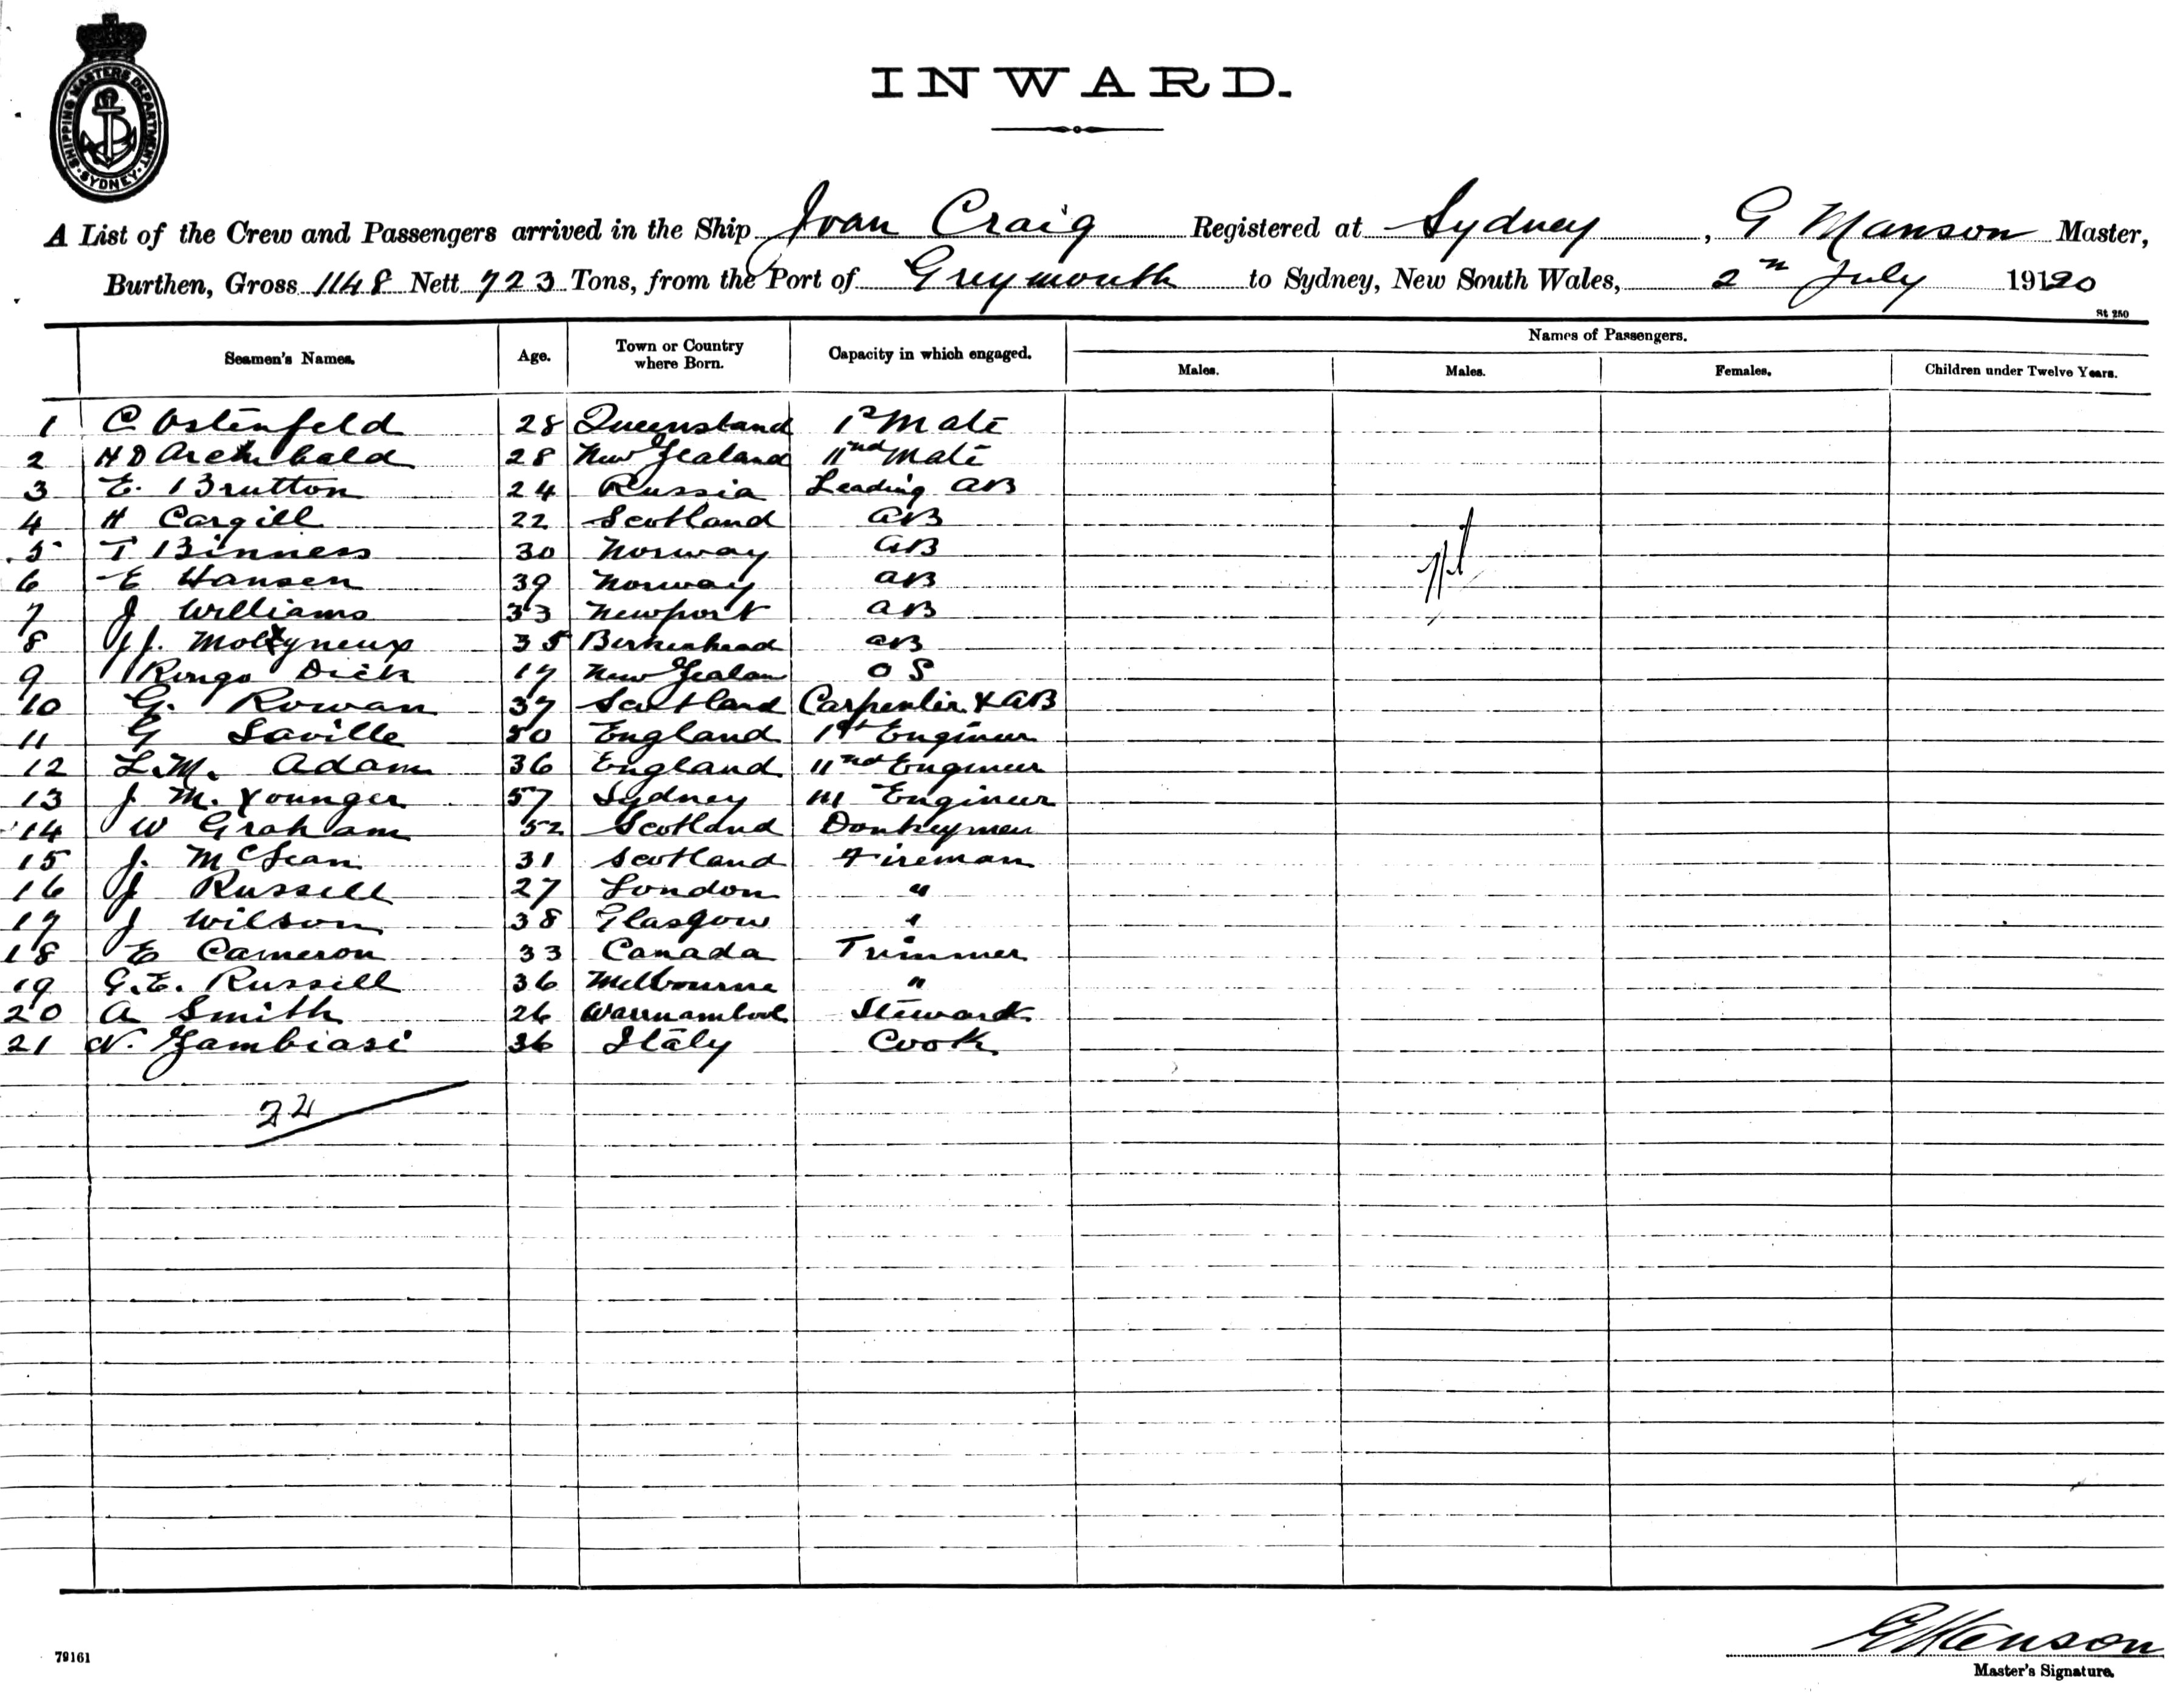 SHIPPING MASTERS DEPARTMENT · SYDNEY ·
INWARD.
A List of the Crew and Passengers arrived in the Ship Joan Craig Registered at Sydney, G Manson Master,
Burthen, Gross 1148 Nett 723 Tons, from the Port of Greymouth to Sydney, New South Wales, 2n July 19120
St 250
Seamen's Names. Age. Town or Country where Born. Capacity in which engaged. Names of Passengers.
Males. Males. Females. Children under Twelve Years.
1 C Ostenfeld 28 Queensland 1st Mate
2 H D Archibald 28 New Zealand 11nd Mate
3 E. Brutton 24 Russia Leading AB
4 H Cargill 22 Scotland AB
5 T Binness 30 Norway AB
6 E Hansen 39 Norway AB
7 J Williams 33 Newport AB
8 J. Molyneux 35 Birkenhead AB
9 Rongo Dick 17 New Zealan O S
10 G. Rowan 37 Scotland Carpenter & AB
11 G Saville 50 England 1st Engineer
12 L.M. Adam 36 England 11nd Engineer
13 J M. Younger 57 Sydney 111 Engineer
14 W Graham 52 Scotland Donkeyman
15 J. McLean 31 Scotland Fireman
16 J Russell 27 London "
17 J Wilson 38 Glasgow "
18 E Cameron 33 Canada Trimmer
19 G.E. Russell 36 Melbourne "
20 A Smith 26 Warrnambool Steward
21 N. Zambiasi 36 Italy Cook
22
79161
Master's Signature.